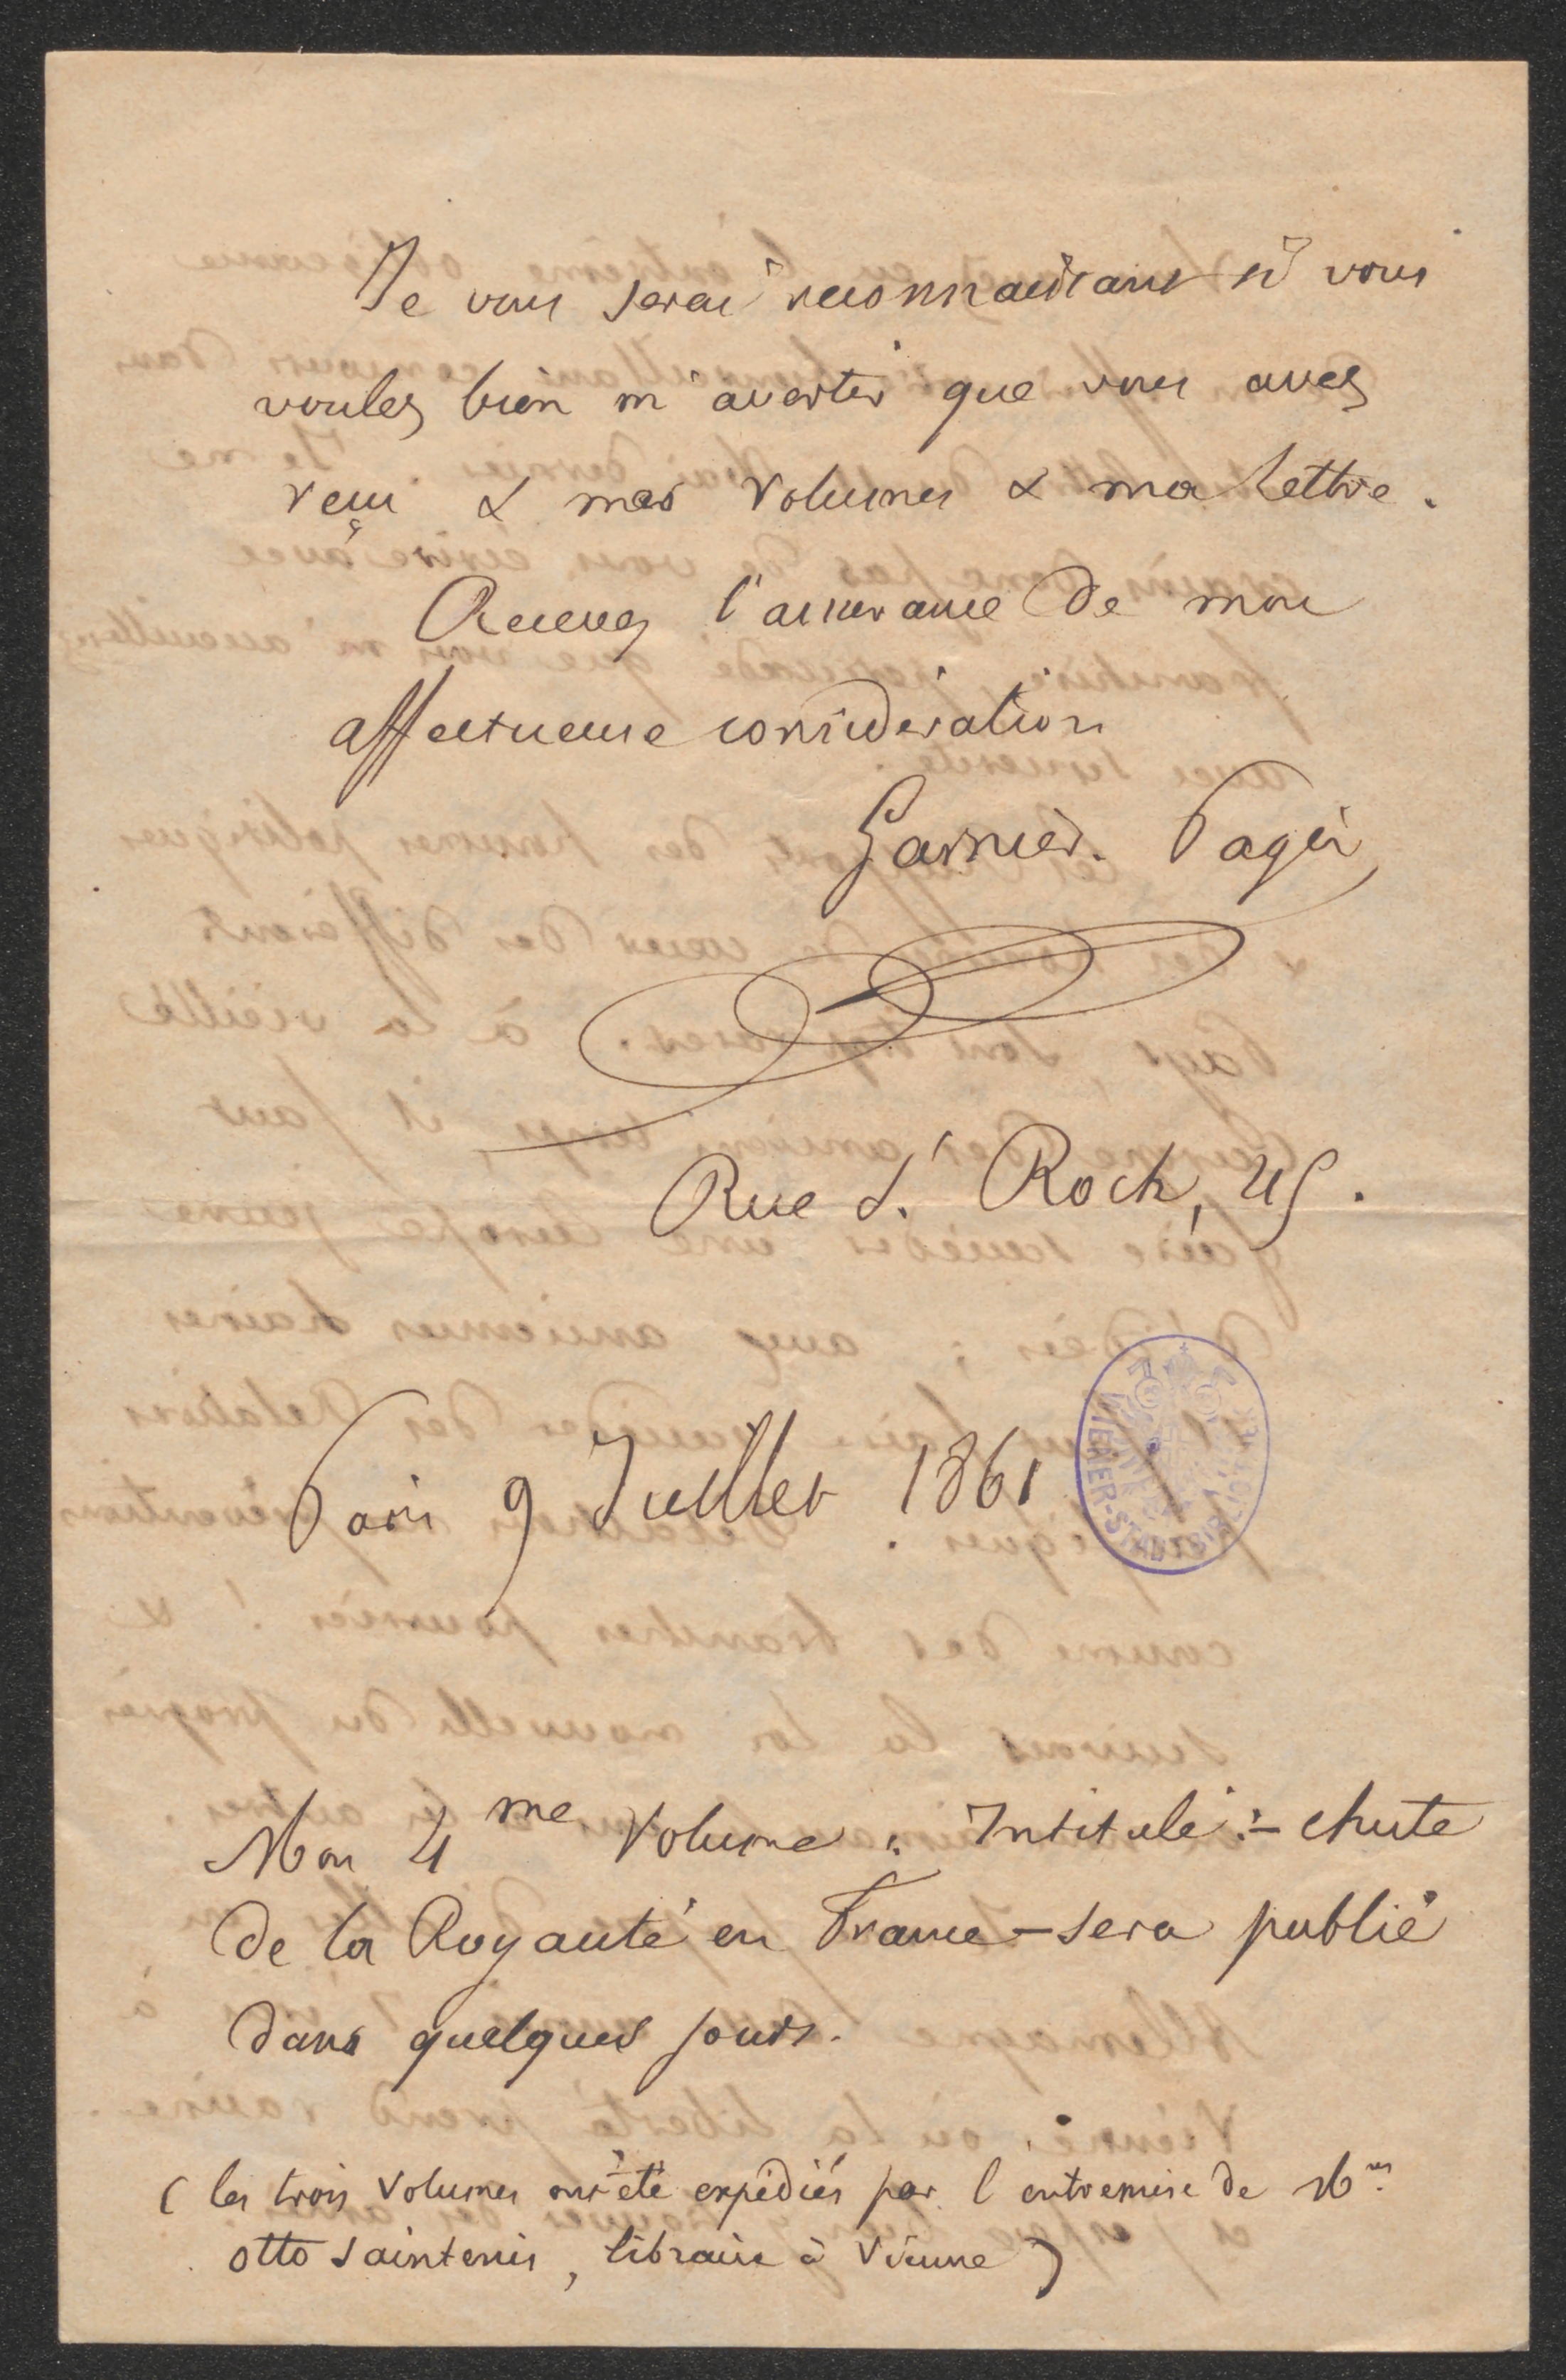 Je vous serai reconnaissant si vous
voulez bien m'avertir que vous avez
reçu & mes volumes & ma lettre.
Recevez l'assurance de mon
affectueuse considération
Garnier-Pagès
Rue St Roch, 45.
Paris 9 Juillet 1861
WIENER-STADTBIBLIOTHEK
Mon 4me volume : Intitulé :- chute
de la Royauté en France - sera publié
dans quelques jours.
( les trois volumes ont été expédiés par l'entremise de Mr
otto Saintenis, libraire à Vienne )